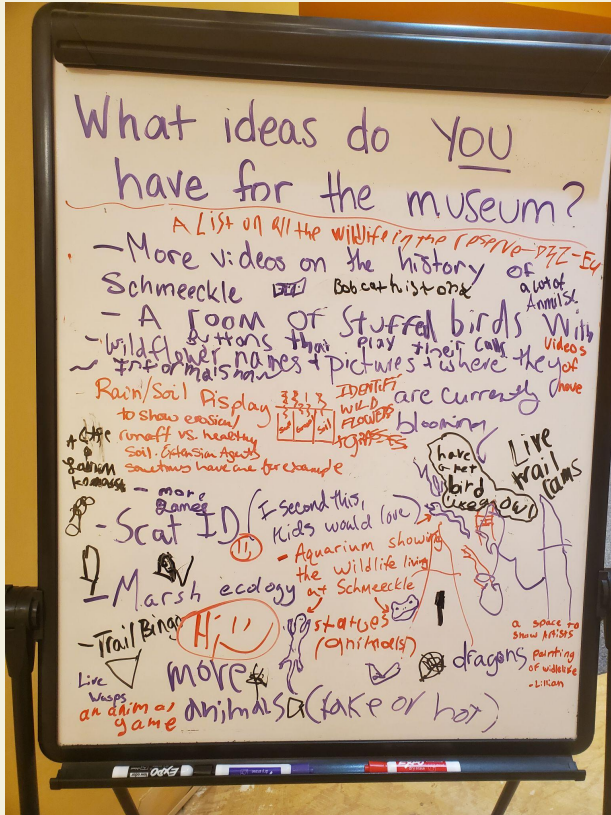 What ideas do YOU
have for the museum?
A List on all the wildlife in the reserve
- More videos on the history of
Schmeeckle
Bobcat history
a lot of
- A room of stuffed birds with
buttons that play their calls
videos
of
- Wildflower names + pictures + where they
are currently
blooming
have
Rain/Soil Display
to show erosion/
runoff vs. healthy
soil. Extension Agents
sometimes have one for example
soil
IDENTIFY
WILD
FLOWERS
have
a pet
bird
like a owl
Live
trail
cams
- more
games
- Scat ID
I second this,
Kids would love
- Aquarium showing
the wildlife living
at Schmeeckle
- Marsh ecology
Hi
statues
(animals)
- Trail Bingo
a space to
show Artists
painting
of wildlife
- Lillian
dragons
Live
Wasps
more
animals (fake or not)
an animal
game
EXPO
EXPO